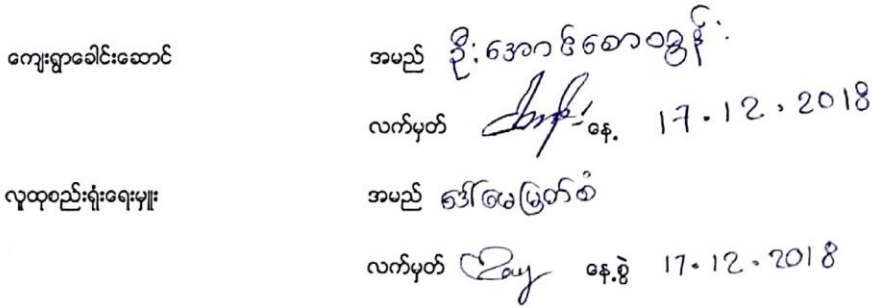 ကျေးရွာခေါင်းဆောင် အမည် ဦးအောင်စောထွန်း
လက်မှတ် နေ့. 17.12.2018
လူထုစည်းရုံးရေးမှူး အမည် ဒေါ်မေမြတ်စံ
လက်မှတ် May နေ့.စွဲ 17.12.2018